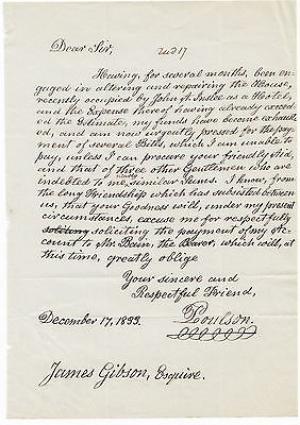 Dear Sir,
Having, for several months, been en-
gaged in altering and repairing the House,
recently occupied by John A. Inslee as a Hotel,
and the Expense thereof having already exceed-
ed the Estimate, my funds have become exhaust-
ed, and am now urgently pressed for the pay-
ment of several Bills, which I am unable to
pay, unless I can procure your friendly Aid,
and that of three other Gentlemen who are
indebted to me, similar Sums. I know, from
the long Friendship which has subsisted between
us, that your Goodness will, under my present
circumstances, excuse me for respectfully
soliciting the payment of my Ac-
count to Mr. Bain, the Bearer, which will, at
this time, greatly oblige
Your sincere and
Respectful Friend,
December 17, 1833. Poulson.
James Gibson, Esquire.